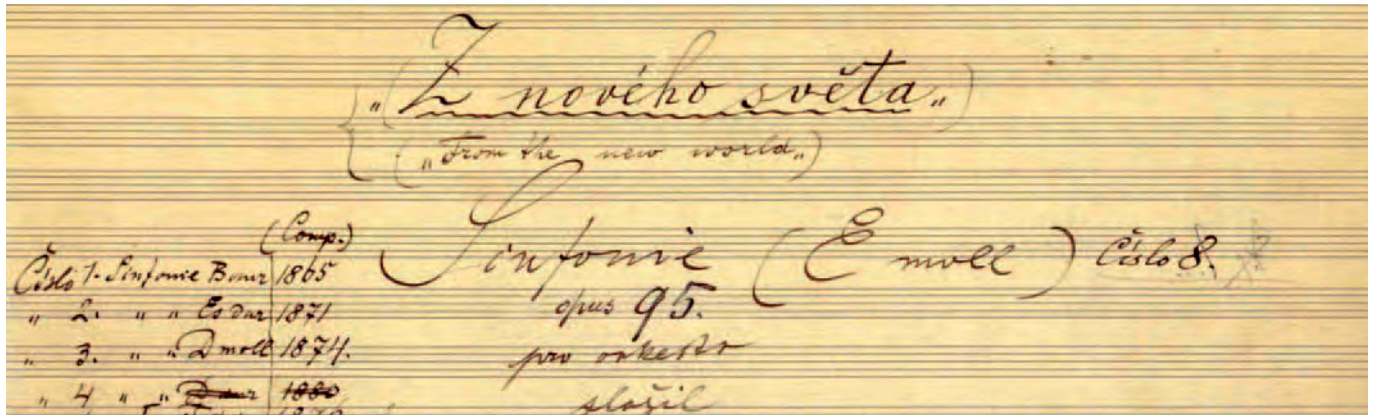 „Z nového světa„
(„From the new world„)
Sinfonie (E moll) Číslo 8.
opus 95.
pro orkestr
složil
(Comp.)
Číslo 1. Sinfonie B dur 1865
„ 2. „ „ Es dur 1871
„ 3. „ „ D moll 1874.
„ 4 „ „ D dur 1880